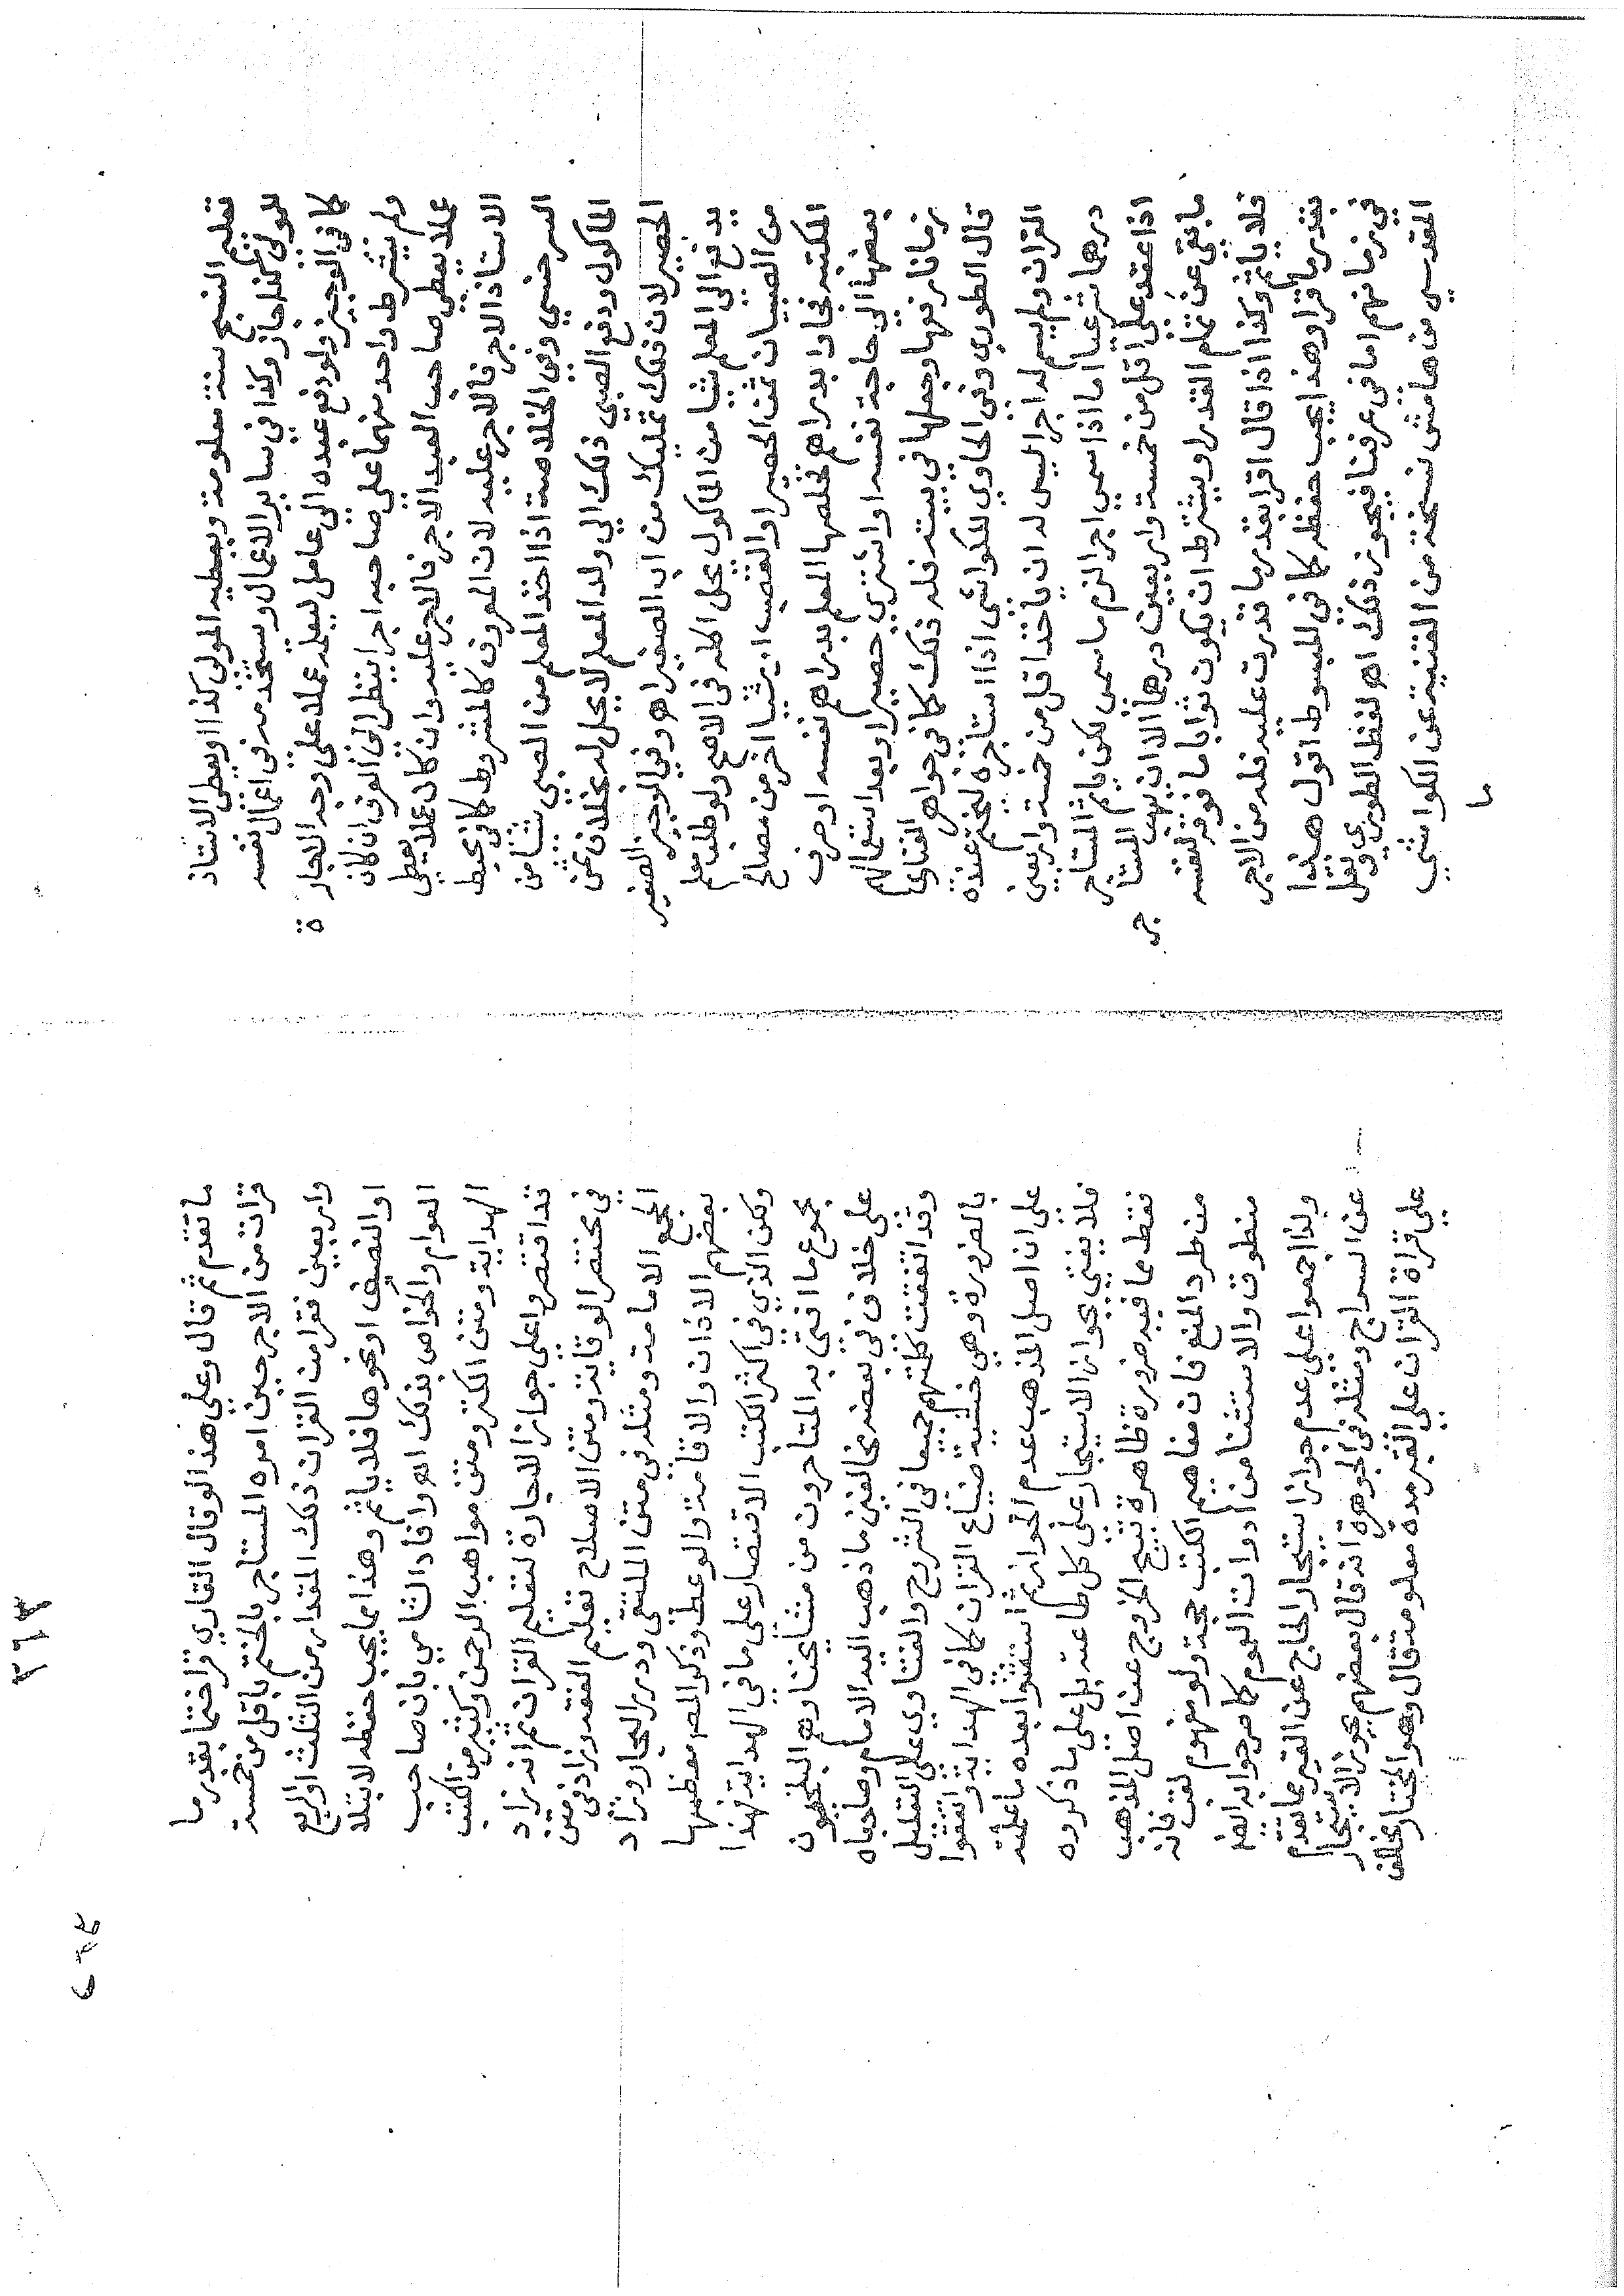 تعليم النسج سنة معلومة ويعطيه المولى كذا او يعطى الاستاذ
للمولى كذا جاز وكذا في ساير الاعمال ويستخدمه في اعمال نفسه
كما في الوجيز ولو دفع عبده الى عامل ليعلمه عملا على وجه الاجارة
ولم يشترط واحد منهما على صاحبه اجرا ينظر الى العرف ان كان
عملا يعطي صاحب العبد الاجر فالاجر عليه وان كان عملا يعطي
الاستاذ الاجر فالاجر عليه لان المعروف كالمشروط كما في محيط
السرخسي وفي الخلاصة اذا اخذ المعلم من الصبي شيا من
الماكول ودفع الصبي ذلك الي ولد المعلم لا يحل له بخلاف ثمن
الحصير لان ذلك تمليك من اب الصغير اهـ وفي الوجيز الصغير
يدفع الى المعلم شيا من الماكول يحل اكله في الاصح ولو طلب معلم
من الصبيان ثمن الحصير او القصب او شيا اخر من مصالح
المكتب فجاوا بدراهم فخلطها المعلم بدراهم نفسه او صرف
بعضها الى حاجة نفسه او اشترى حصيرا وبعد استعمالهم
زمانا رفعها وجعلها في بيته فله ذلك كما في جواهر الفتاوى
قال الطوري وفي الحاوي للكواشى اذا استاجره ليختم عنده
القران ولم يسم له اجرا ليس له ان ياخذ اقل من خمسة واربعين
درهما شرعيا اما اذا سمي اجرا لزم ما سمى لكن ياثم المستاجر
اذا عقد على اقل من خمسة واربعين درهما الا ان يهب المستاجر
ما بقى عن تمام القدر او يشترط ان يكون ثواب ما فوقه لنفسه
فلا ياثم وكذا اذا قال اقرا بقدر ما قدرت عليه فله من الاجر
بقدر ما قرا وهذا يجب حفظه كما في المبسوط اقول هذا
في زمانهم اما في عرفنا فيجوز ذلك اهـ لفظ الطوري ونقل
المقدسي من هامش نسخة من القنية عن الكواشي
ما
ما تقدم ثم قال وعلى هذا لو قال القاري قرا ختما بقدر ما
قرات من الاجر حين امره المستاجر بالختم باقل من خمسة
واربعين فقرا من القران ذلك المقدار من الثلث او الربع
او النصف او نحوها فلا ياثم وهذا مما يجب حفظه لابتلا
العوام والخواص بذلك اهـ وافاد الشامي بان صاحب
الهداية ومتن الكنز ومتن مواهب الرحمن وكثير من الكتب
قد اقتصروا على جواز الاجارة لتعليم القران ثم انه زاد
في مختصر الوقاية ومتن الاصلاح تعليم الفقه وزاد في متن
المجمع الامامة ومثله في متن الملتقى ودرر البحار وزاد
بعضهم الاذان والاقامة والوعظ وذكر المص معظمها
ولكن الذي في اكثر الكتب الاقتصار على ما في الهداية فهذا
مجموع ما افتى به المتاخرون من مشايخنا وهم البلخيون
على خلاف في بعضه مخالفين ما ذهب اليه الامام وصاحباه
وقد اتفقت كلمتهم جميعا في الشروح والفتاوي على التعليل
بالضرورة وهي خشية ضياع القران كما في الهداية واتفقوا
على ان اصل المذهب عدم الجواز ثم استثنوا بعده ما علمته
فلا يفتي بجواز الاستيجار على كل طاعة بل على ما ذكروه
فقط مما فيه ضرورة ظاهرة تبيح الخروج عن اصل المذهب
من طرد المنع فان مفاهيم الكتب حجة ولو مفهوم لقب فانه
منطوق والاستثنا من ادوات العموم كما صرحوا به ايضا
ولذا اجمعوا على عدم جواز استيجار الحاج عن الغير مما تقدم
عن السراج ومثله في الجوهرة انه قال بعضهم يجوز الاستيجار
على قراة القران على القبر مدة معلومة قال وهو المختار مخالف
٣٦٣